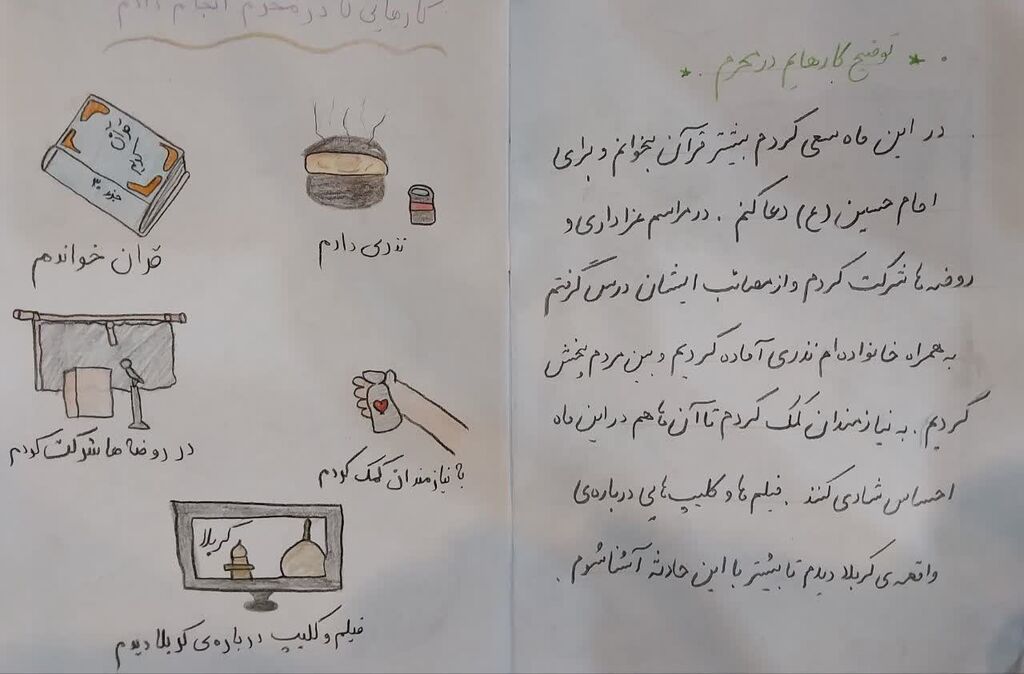 کارهایی که در محرم انجام دادم
قرآن مجید
جزء ۳۰
قران خواندم
نذری دادم
در روضه ها شرکت کردم
به نیازمندان کمک کردم
کربلا
فیلم و کلیپ درباره‌ی کربلا دیدم
توضیح کارهایم در محرم .
در این ماه سعی کردم بیشتر قرآن بخوانم و برای
امام حسین (ع) دعا کنم . در مراسم عزاداری و
روضه ها شرکت کردم و از مصائب ایشان درس گرفتم
به همراه خانواده ام نذری آماده کردیم و بین مردم پخش
کردیم . به نیازمندان کمک کردم تا آن ها هم در این ماه
احساس شادی کنند . فیلم ها و کلیپ هایی درباره‌ی
واقعه ی کربلا دیدم تا بیشتر با این حادثه آشنا شوم .